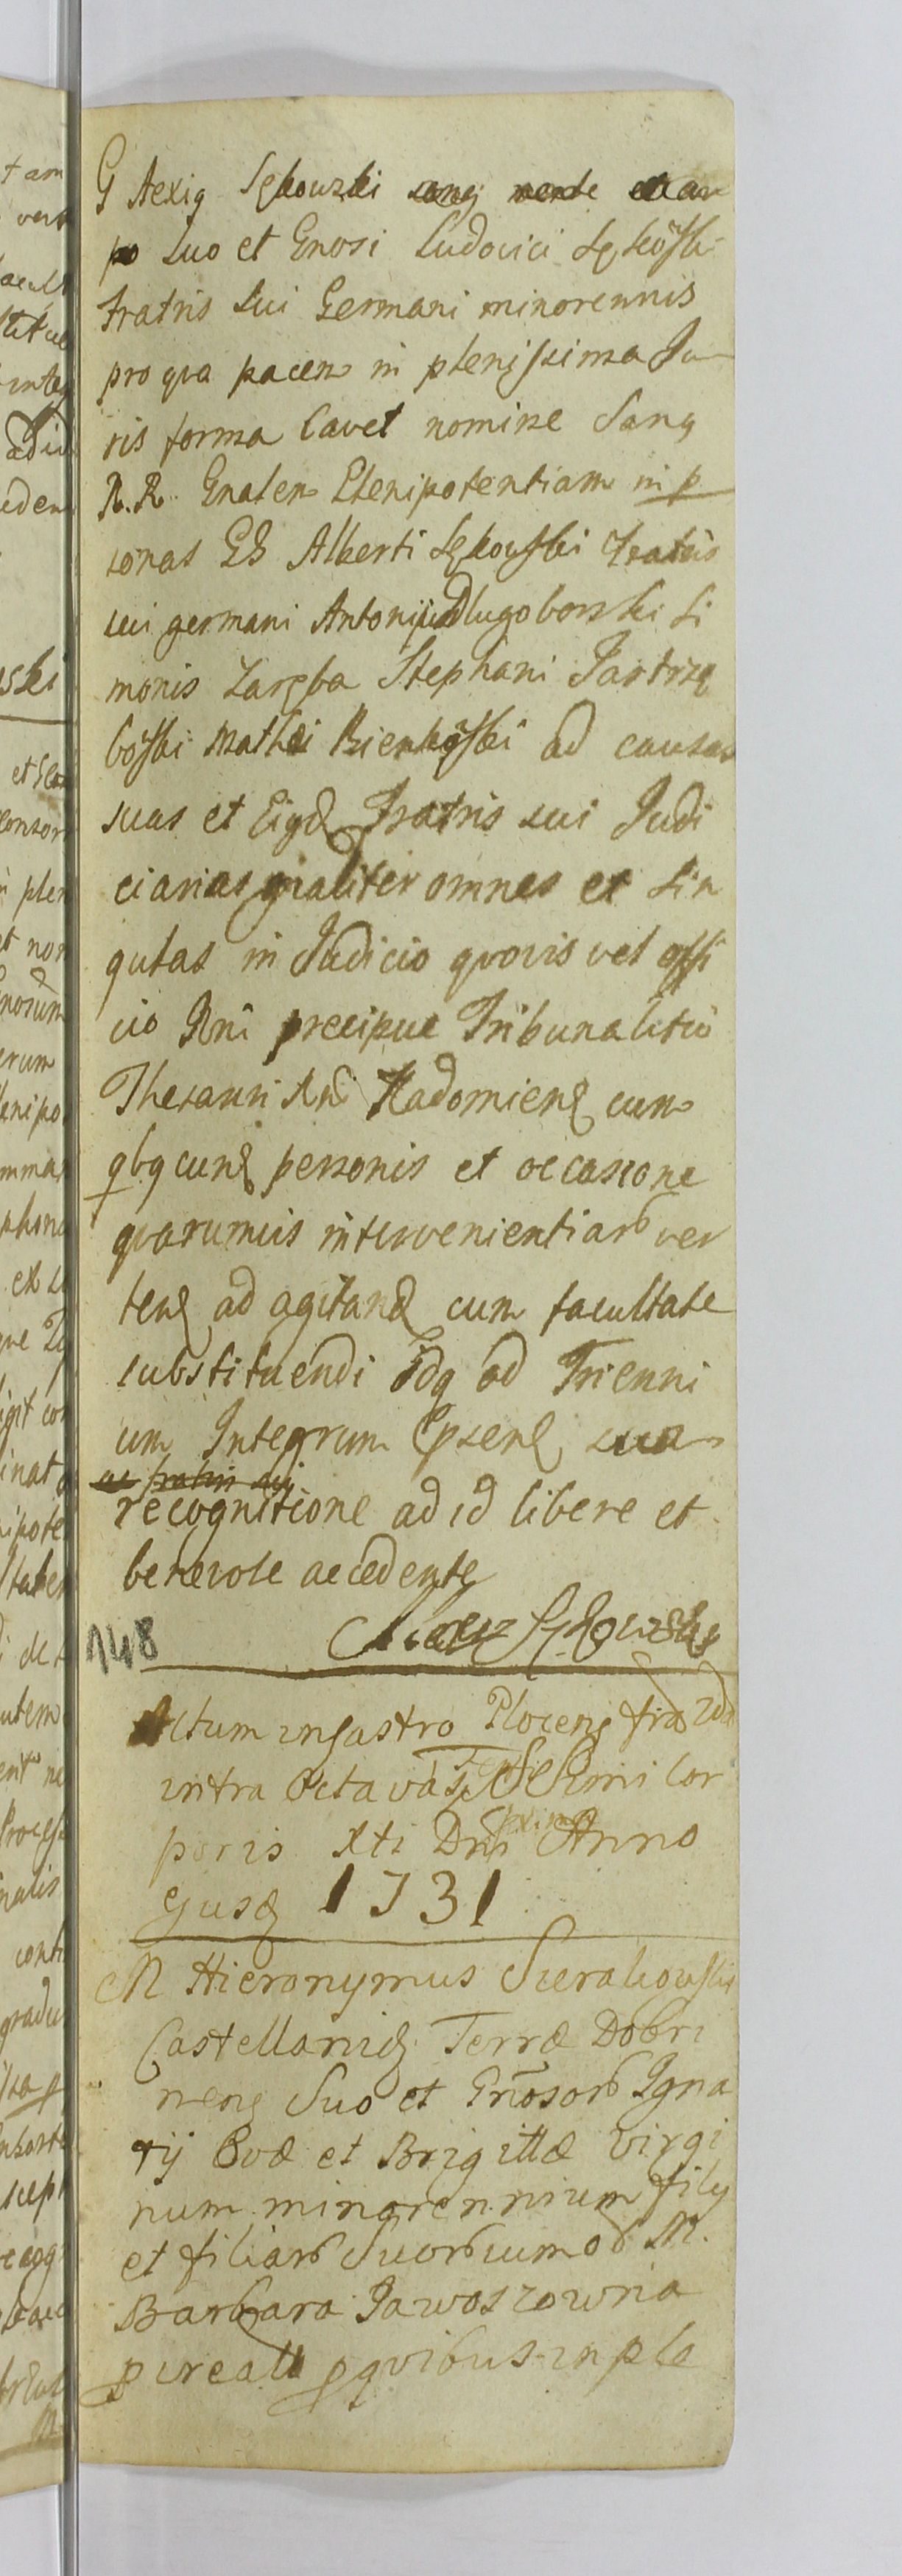 G Alexig Sękowski
suo et Gnosi Ludovici Sękoski
Fratris sui Germani minorennis
pro qva pacem in plenissima Ju
ris forma Cavet nomine Sang
R.R. Gnalem Plenipotentiam in p
sonas GG Alberti Sękowski Fratris
sui germani Antonij Dlugoborski Si
monis Zaręba Stephani Jastrzę
boski Mathei Bienkoski ad causas
suas et Eigd Fratris sui Judi
ciarias gnaliter omnes et sin
gulas in Judicio qvovis vel offi
cio Rni precipue Tribunalitio
Thesauri Rni Radomiens cum
qbgcunq personis et occasione
qvarumvis intervenientiarb ver
tens ad agitand cum facultate
substituendi idq ad Trienni
um Integrum Psens sua
ac fratris sui
recognitione ad id libere et
benevole accedente
Sękowski
148
Actum in Castro Plocens fria 2da
intra Octavas Festi SSSimi Cor
poris Xti Dni Anno
Ejusd 1731
M Hieronymus Sierakowski
Castellanid Terræ Dobri
nens Suo et Gnosorb Igna
tij Evæ et Brigittæ Virgi
num minorennium filij
et filiarb Suorb cum ob M.
Barbara Jawoszowna
pcreatt p qvibus in ple